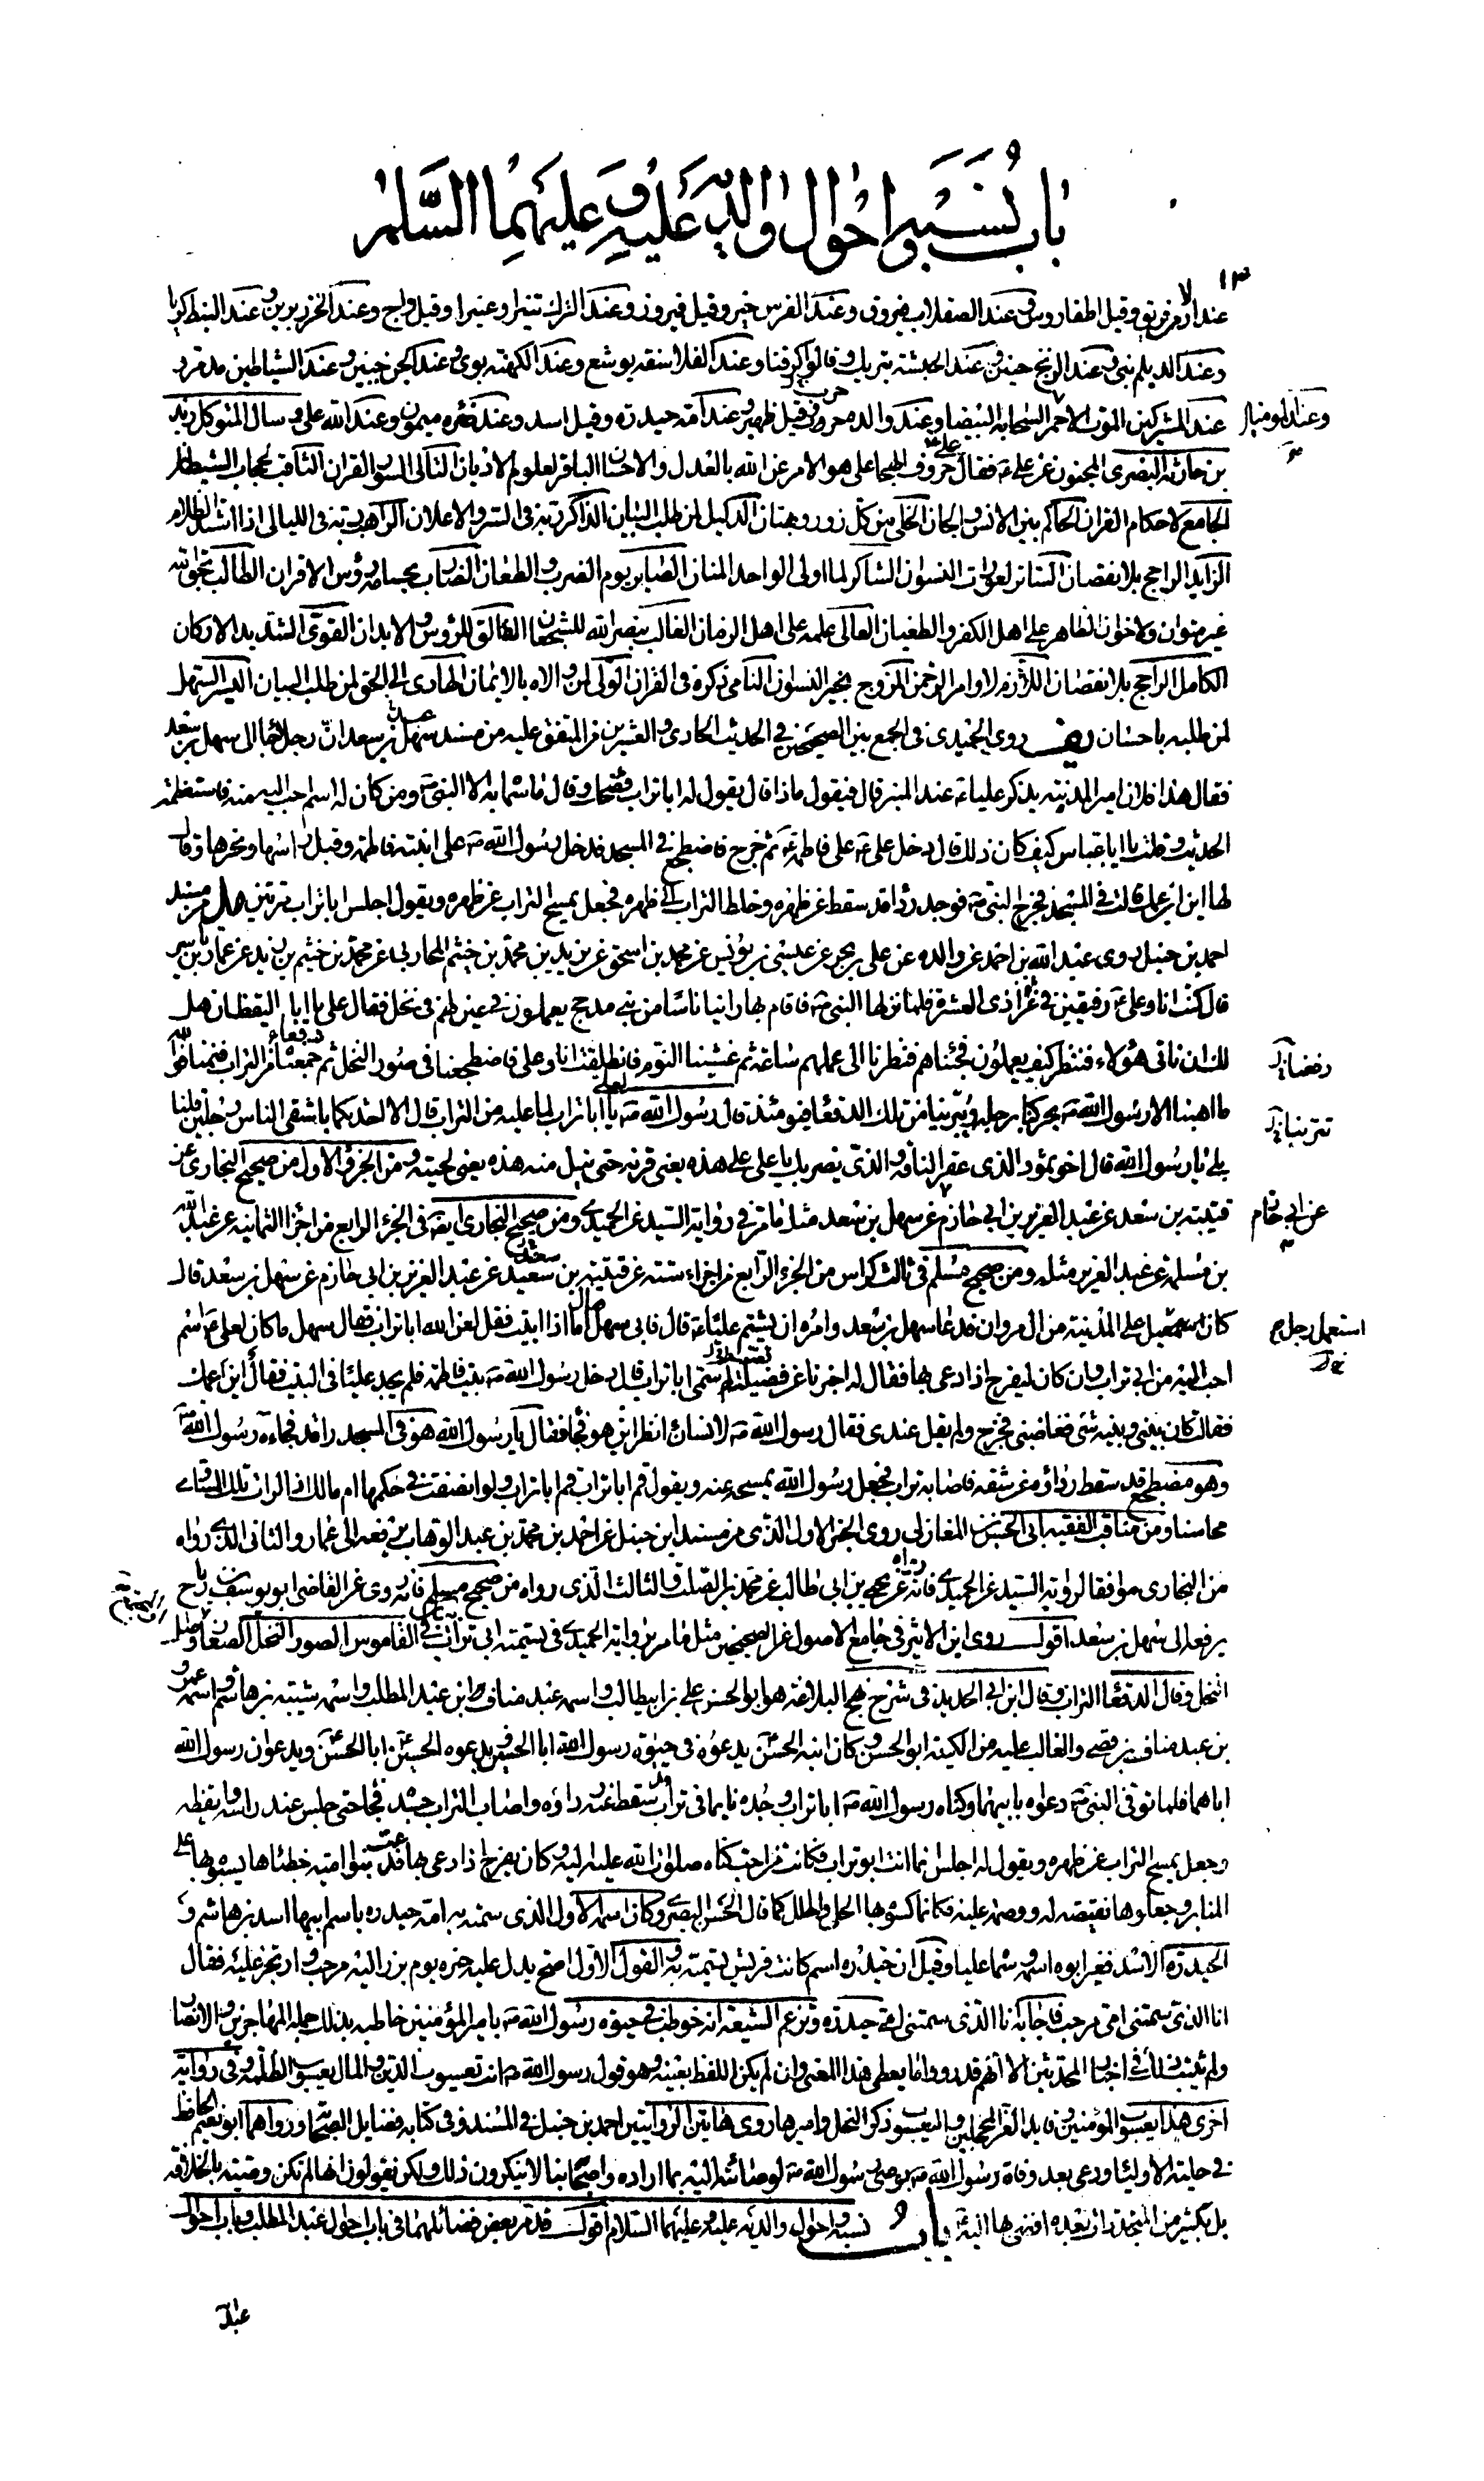 باب نسبه و احوال والديه عليه و عليهما السلم
١٣
عند الارمن فريق وقيل اطفاروس وعند الصقلاب فيروق وعند الفرس خير وقيل فيروز وعند الترك تنيرا وعنيرا وقيل راج وعند الخزر برين وعند النبط كريا
وعند الديلم نبى وعند الزنج حنين وعند الحبشة بتريك وقالوا كرقنا وعند الفلاسفة يوشع وعند الكهنة بوى وعند الجن حنين وعند الشياطين مدمر و
عند المشركين الموت الاحمر السحابة البيضا وعند والده حرب وقيل ظهير وعند امه حيدرة وقيل اسد وعند ظئره ميمون وعند الله على وسال المتوكل زيد
بن حارثة البصرى المجنون عن على ع فقال على حروف الهجا على هو الامر عن الله بالعدل والاحسان الباقر لعلوم الاديان التالى لسور القران الثاقب لحجاب الشيطان
الجامع لاحكام القران الحاكم بين الانس والجان الخلى من كل زور وبهتان الدليل لمن طلب البيان الذاكر ربه فى السر والاعلان الراهب ربه فى الليالى اذا اشتد الظلام
الزايد الراجح بلا نقصان الساتر لعورات النسوان الشاكر لما اولى الواحد المنان الصابر يوم الضرب والطعان الضراب بحسامه رؤس الاقران الطالب بحق الله
غير متوان ولا خوان الظاهر على اهل الكفر والطغيان العالى علمه على اهل الزمان الغالب بنصر الله للشجعان الفالق للرؤس والابدان القوى الشديد الاركان
الكامل الراجح بلا نقصان اللازم لاوامر الرحمن المزوج بخير النسوان النامى ذكره فى القران الولى لمن والاه بالايمان الهادى الى الحق لمن طلب البيان اليسر السهل
لمن طلبه باحسان يف روى الحميدى فى الجمع بين الصحيحين فى الحديث الحادى والعشرين من المتفق عليه من مسند سهل بن سعد ان رجلا جا الى سهل بن سعد
فقال هذا فلان امير المدينة يذكر عليا ع عند المنبر قال فيقول ماذا قال يقول له ابا تراب فضحك وقال ما سماه به الا النبى ص وما كان له اسم احب اليه منه فاستعظمت
الحديث وقلت يا ابا عباس كيف كان ذلك قال دخل على ع على فاطمة ع ثم خرج فاضطجع فى المسجد فدخل رسول الله ص على ابنته فاطمة وقبل راسها ونحرها وقال
لها اين ابن عمك قالت فى المسجد فخرج النبى ص فوجد رداه قد سقط عن ظهره وخلط التراب الى ظهره فجعل يمسح التراب عن ظهره ويقول اجلس ابا تراب مرتين مد من مسند
احمد بن حنبل روى عبد الله بن احمد عن والده عن على بن بحر عن عيسى بن يونس عن محمد بن اسحق عن يزيد بن محمد بن خثيم المحاربى عن محمد بن خثيم بن يزيد عن عمار بن ياسر
قال كنت انا وعلى ع رفيقين فى غزاة ذى العشرة فلما نزلها النبى ص فاقام بها راينا ناسا من بنى مدلج يعملون فى عين لهم فى نخل فقال على يا ابا اليقظان هل
لك ان ناتى هؤلاء فننظر كيف يعملون فجئناهم فنظرنا الى عملهم ساعة ثم غشينا النوم فانطلقت انا وعلى فاضطجعنا فى صور النخل ثم جمعنا من التراب فنمنا فوالله
ما اهبنا الا رسول الله ص يحركنا برجله وتتربنا من تلك الدقعا فيومئذ قال رسول الله ص لعلى يا ابا تراب لما عليه من التراب قال الا احدثكما باشقى الناس رجلين قلنا
بلى يا رسول الله قال اخو ثمود الذى عقر الناقة والذى يضربك يا على على هذه يعنى قرنه حتى تبل منه هذه يعنى لحيته ومن الجزو الاول من صحيح البخارى عن
قتيبة بن سعد عن عبد العزيز بن ابى حازم عن سهل بن سعد مثل ما مر فى رواية السيد عن الحميدى ومن صحيح البخارى ايضا فى الجزء الرابع من اجزا الثمانية عن عبد الله
بن مسلمة عن عبد العزيز مثله ومن صحيح مسلم فى ثالث كراس من الجزو الرابع من اجزاء ستة عن قتيبة بن سعيد عن عبد العزيز بن ابى حازم عن سهل بن سعد قال
كان استعمل على المدينة من ال مروان فدعا سهل بن سعد وامره ان يشتم عليا ع قال فابى سهل فقال اما اذا ابيت فقل لعن الله ابا تراب فقال سهل ما كان لعلى ع اسم
احب اليه من ابى تراب وان كان ليفرح اذا دعى بها فقال له اخبرنا عن قصته لم سمى ابا تراب قال دخل رسول الله ص بيت فاطمة فلم يجد عليا فى البيت فقال اين ابن عمك
فقالت كان بينى وبينه شى فغاضبنى فخرج ولم يقل عندى فقال رسول الله ص لانسان انظر اين هو فجا فقال يا رسول الله هو فى المسجد راقد فجاءه رسول الله ص
وهو مضطجع قد سقط رداؤه عن شقه فاصابه تراب فجعل رسول الله يمسحه عنه ويقول قم ابا تراب قم ابا تراب
محاسنا ومن مناقب الفقيه ابى الحسن بن المغازلى روى الخبر الاول الذى من مسند ابن حنبل عن احمد بن محمد بن عبد الوهاب يرفعه الى عمار والثانى الذى رواه
من البخارى موافقا لرواية السيد عن الحميدى فانه رواه عن يحيى بن ابى طالب عن محمد بن الصلت والثالث الذى رواه من صحيح مسلم فانه روى عن القاضى ابو يوسف بن رباح
يرفعه الى سهل بن سعد اقول روى ابن الاثير فى جامع الاصول عن الصحيحين مثل ما مر برواية الحميدى فى تسميته ابى تراب وفى القاموس الصور النخل الصغار واصل
النخل وقال الدقعا التراب وقال ابن ابى الحديد فى شرح نهج البلاغة هو ابو الحسن على بن ابيطالب واسمه عبد مناف ابن عبد المطلب واسمه شيبة بن هاشم واسمه عمرو
بن عبد مناف بن قصى والغالب عليه من الكنية ابو الحسن وكان ابنه الحسن يدعوه فى حيوة رسول الله ابا الحسين ويدعوه الحسين ابا الحسن ويدعوان رسول الله
اباهما فلما توفى النبى ص دعواه بابيهما وكناه رسول الله ص ابا تراب وجده نايما فى تراب قد سقط عنه رداؤه واصاب التراب جسده فجا حتى جلس عند راسه وايقظه
وجعل يمسح التراب عن ظهره ويقول له اجلس انما انت ابو تراب فكانت من احب كناه صلوات الله عليه اليه وكان يفرح اذا دعى بها فدعت بنو امية خطباها يسبوه بها على
المنابر وجعلوها نقيصة له ووصمة عليه فكانما كسوه بها الحلى والحلل كما قال الحسن البصرى وكان اسمه الاول الذى سمته به امه حيدره باسم ابيها اسد بن هاشم و
الحيدرة الاسد فغير ابوه اسمه وسماه عليا وقيل ان حيدره اسم كانت قريش تسميه به والقول الاول اصح يدل عليه خبره يوم برز اليه مرحب وارتجز عليه فقال
انا الذى سمتنى امى مرحبا فاجابه انا الذى سمتنى امى حيدرة وتزعم الشيعة انه خوطب فى حيوة رسول الله ص بامير المؤمنين خاطبه بذلك جملة المهاجرين والانصار
ولم يثبت ذلك فى اخبار المحدثين الا انهم قد رووا ما يعطى هذا المعنى وان لم يكن اللفظ بعينه وهو قول رسول الله ص له انت يعسوب الدين والمال يعسوب الظلمة وفى رواية
اخرى هذا يعسوب المؤمنين وقايد الغر المحجلين واليعسوب ذكر النحل واميرها روى هاتين الروايتين احمد بن حنبل فى المسند وفى كتابه فضايل الصحابة ورواهما ابو نعيم الحافظ
فى حلية الاوليا ودعى بعد وفاة رسول الله ص بوصى رسول الله ص لوصايته اليه بما اراده واصحابنا لا ينكرون ذلك ولكن يقولون انها لم تكن وصية بالخلافة
بل بكثير من المتجددات بعده افضى بها اليه باب نسبه و احوال والديه عليه و عليهما السلام اقول قد مر بعض فضائلهما فى باب احوال عبد المطلب وباب احوال
عن ابى حازم
استعمل رجل